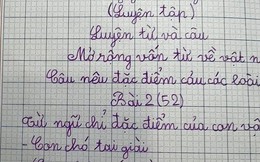 (Luyện tập)
Luyện từ và câu
Mở rộng vốn từ về vật n
Câu nêu đặc điểm của các loài
Bài 2 (52)
Từ ngữ chỉ đặc điểm của con vậ
- Con chó tai giải